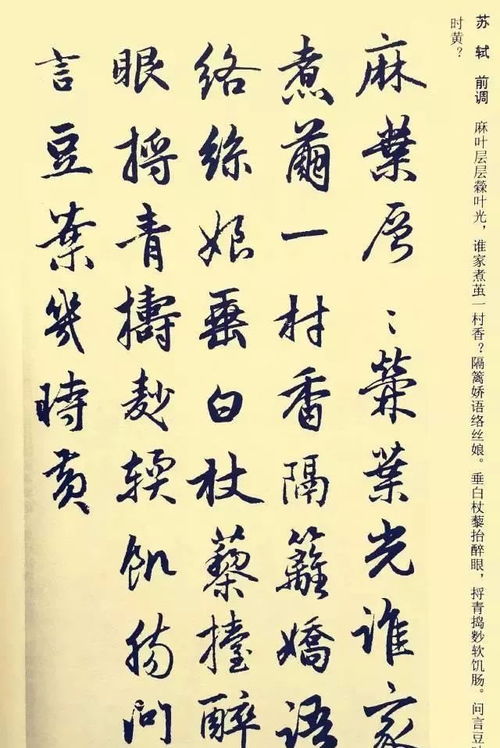 苏轼 前调 麻叶层层檾叶光，谁家煮茧一村香？隔篱娇语络丝娘。垂白杖藜抬醉眼，捋青捣麨软饥肠。问言豆
时黄？
麻葉層〻檾葉光誰家
煮繭一村香隔籬嬌語
络絲娘垂白杖藜擡醉
眼捋青擣麨輭飢腸問
言豆葉幾時黄